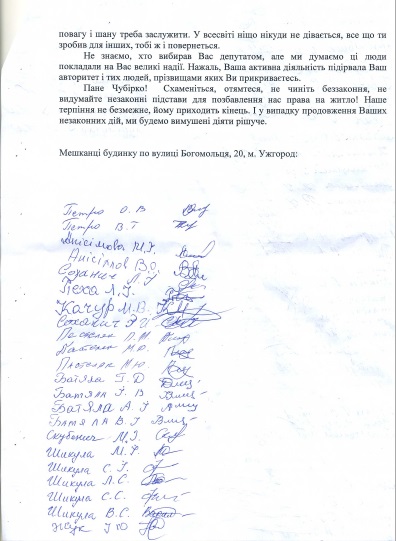 повагу і шану треба заслужити. У всесвіті нішо нікуди не дівається, все що ти
зробив для інших, тобі ж і повернеться.
Не знаємо, хто вибирав Вас депутатом, але ми думаємо ці люди
покладали на Вас великі надії. Нажаль, Ваша активна діяльність підірвала Ваш
авторитет і тих людей, прізвищами яких Ви прикриваєтесь.
Пане Чубірко! Схаменіться, отямтеся, не чиніть беззаконня, не
видумайте незаконні підстави для позбавлення нас права на житло! Наше
терпіння не безмежне, йому приходить кінець. І у випадку продовження Ваших
незаконних дій, ми будемо вимушені діяти рішуче.
Мешканці будинку по вулиці Богомольця, 20, м. Ужгород:
Петро О. В
Петро В. Г
Анісімова М. І.
Анісімов В. О.
Соханич Л. І
Пеха Л. І.
Качур М. В.
Соханич
М. Ю.
Батяла Г. Д
Батяла І. В
Батяла А. І
Батяла В. І
Скубенич М. І.
Шикула М. Ф.
Шикула С. І.
Шикула Л. С.
Шикула С. С.
Шикула В. С.
Жук І Ю